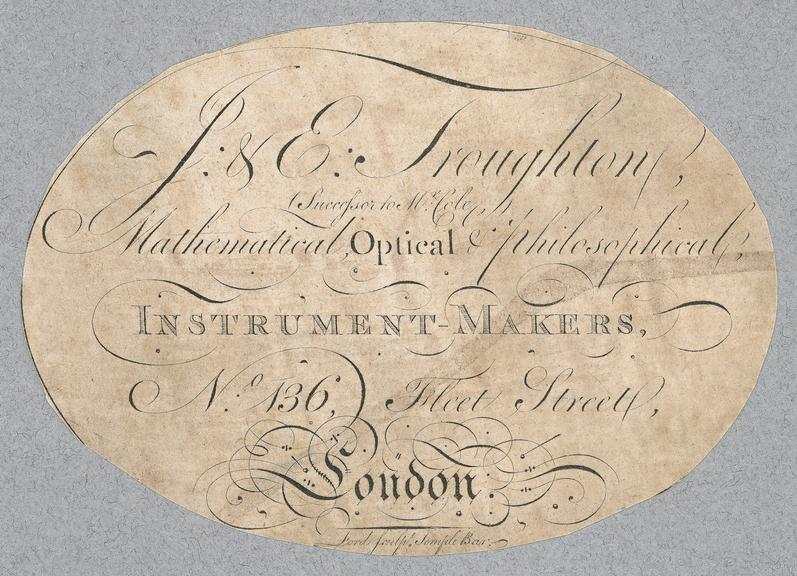 J: & E: Troughton,
(Successor to Mr. Cole,)
Mathematical, Optical & Philosophical,
INSTRUMENT-MAKERS,
No. 136, Fleet Street,
London.
Ford sculpt. Temple Bar.